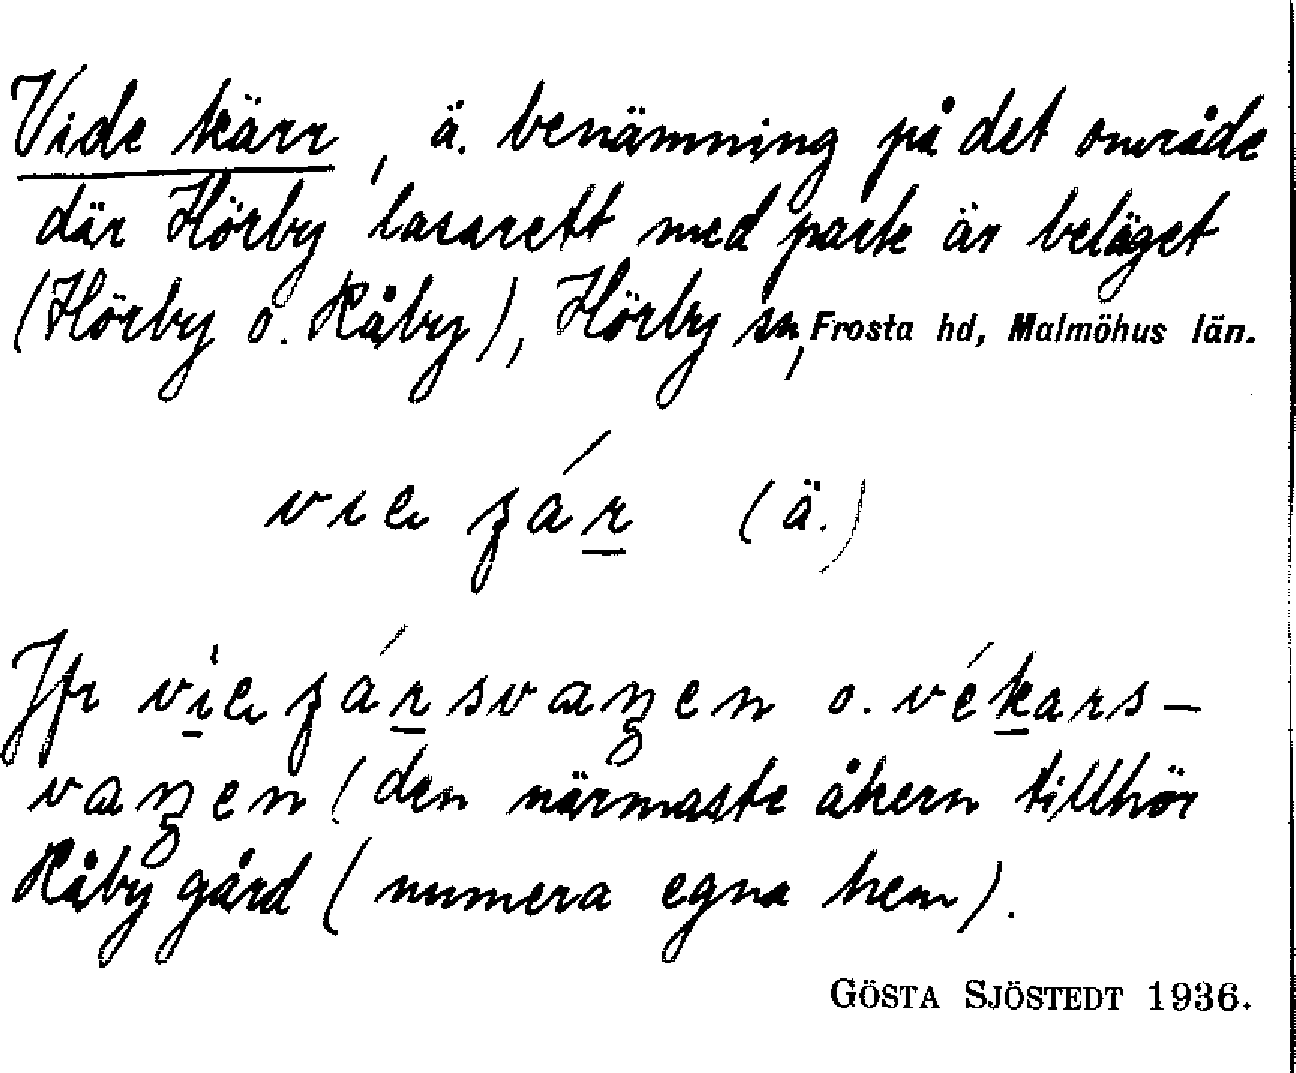 Vide kärr, ä. benämning på det område
där Hörby lasarett med park är beläget
(Hörby o. Råby), Hörby sn, Frosta hd, Malmöhus län.
(ä.)
Jfr o.
(den närmaste åkern tillhör
Råby gård (numera egna hem).
GÖSTA SJÖSTEDT 1936.